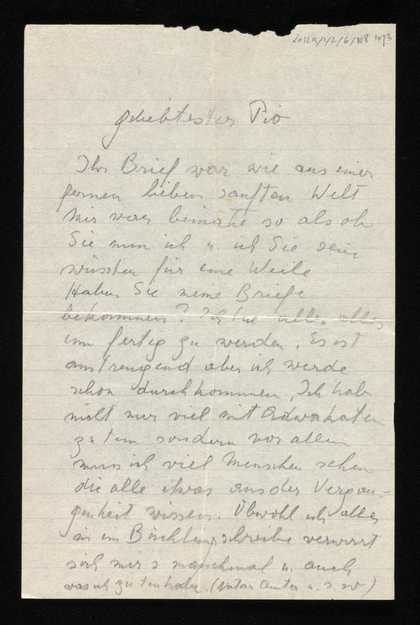 geliebtester Pió
Ihr Brief war wie aus einer
fernen lieben sanften Welt
Mir war beinahe so als ob
Sie nun ich u. ich Sie sein
müssten für eine Weile
Haben Sie meine Briefe
bekommen? Ich tue alles
um fertig zu werden. Es ist
anstrengend aber ich werde
schon durchkommen, Ich hab
nicht nur viel mit Advokaten
zu tun sondern vor allem
muss ich viel Menschen sehen
die alle etwas aus der Vergan-
genheit wissen. Obwohl ich alles
in ein schreibe verwirrt
sich mir's manchmal u. auch
was ich zu tun habe. (